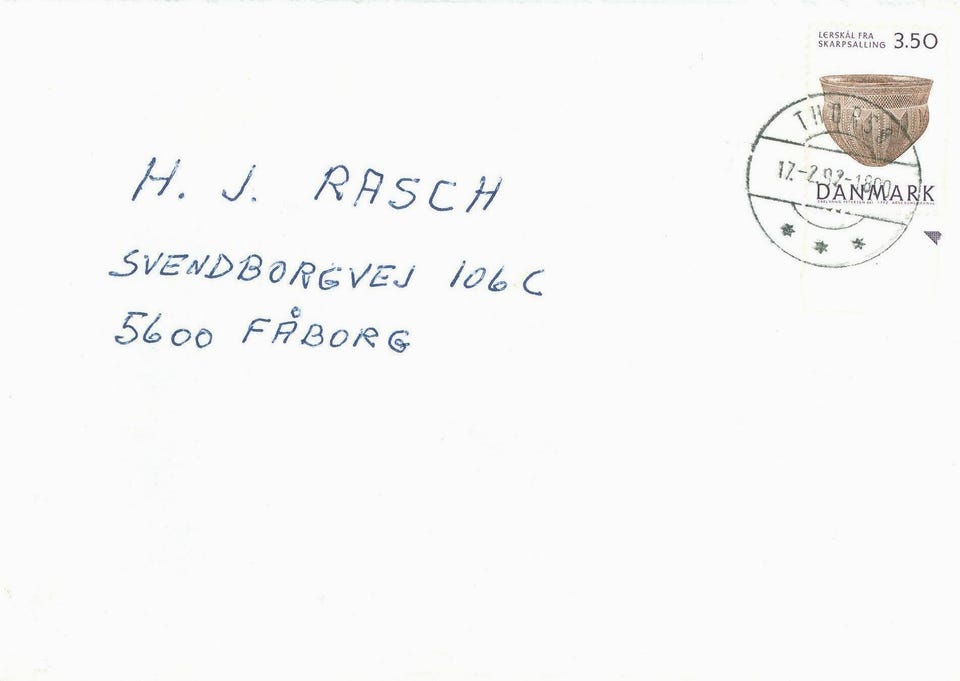 LERSKÅL FRA
SKARPSALLING 3.50
THORSØ
17.-2.92-1800
DANMARK
H. J. RASCH
SVENDBORGVEJ 106 C
5600 FÅBORG